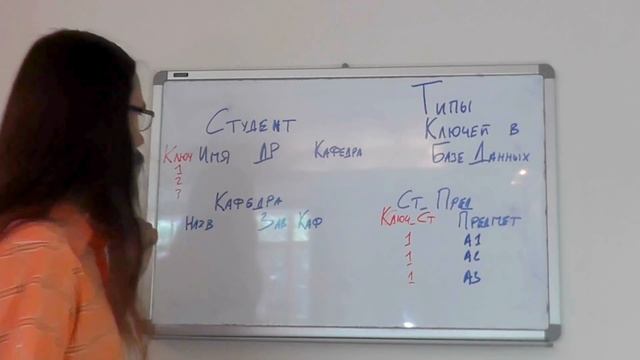 Типы
Ключей в
Базе Данных
Студент
Ключ Имя ДР Кафедра
1
2
?
Кафедра
Назв Зав Каф
Ст_Пред
Ключ_Ст Предмет
1 А1
1 А2
1 А3